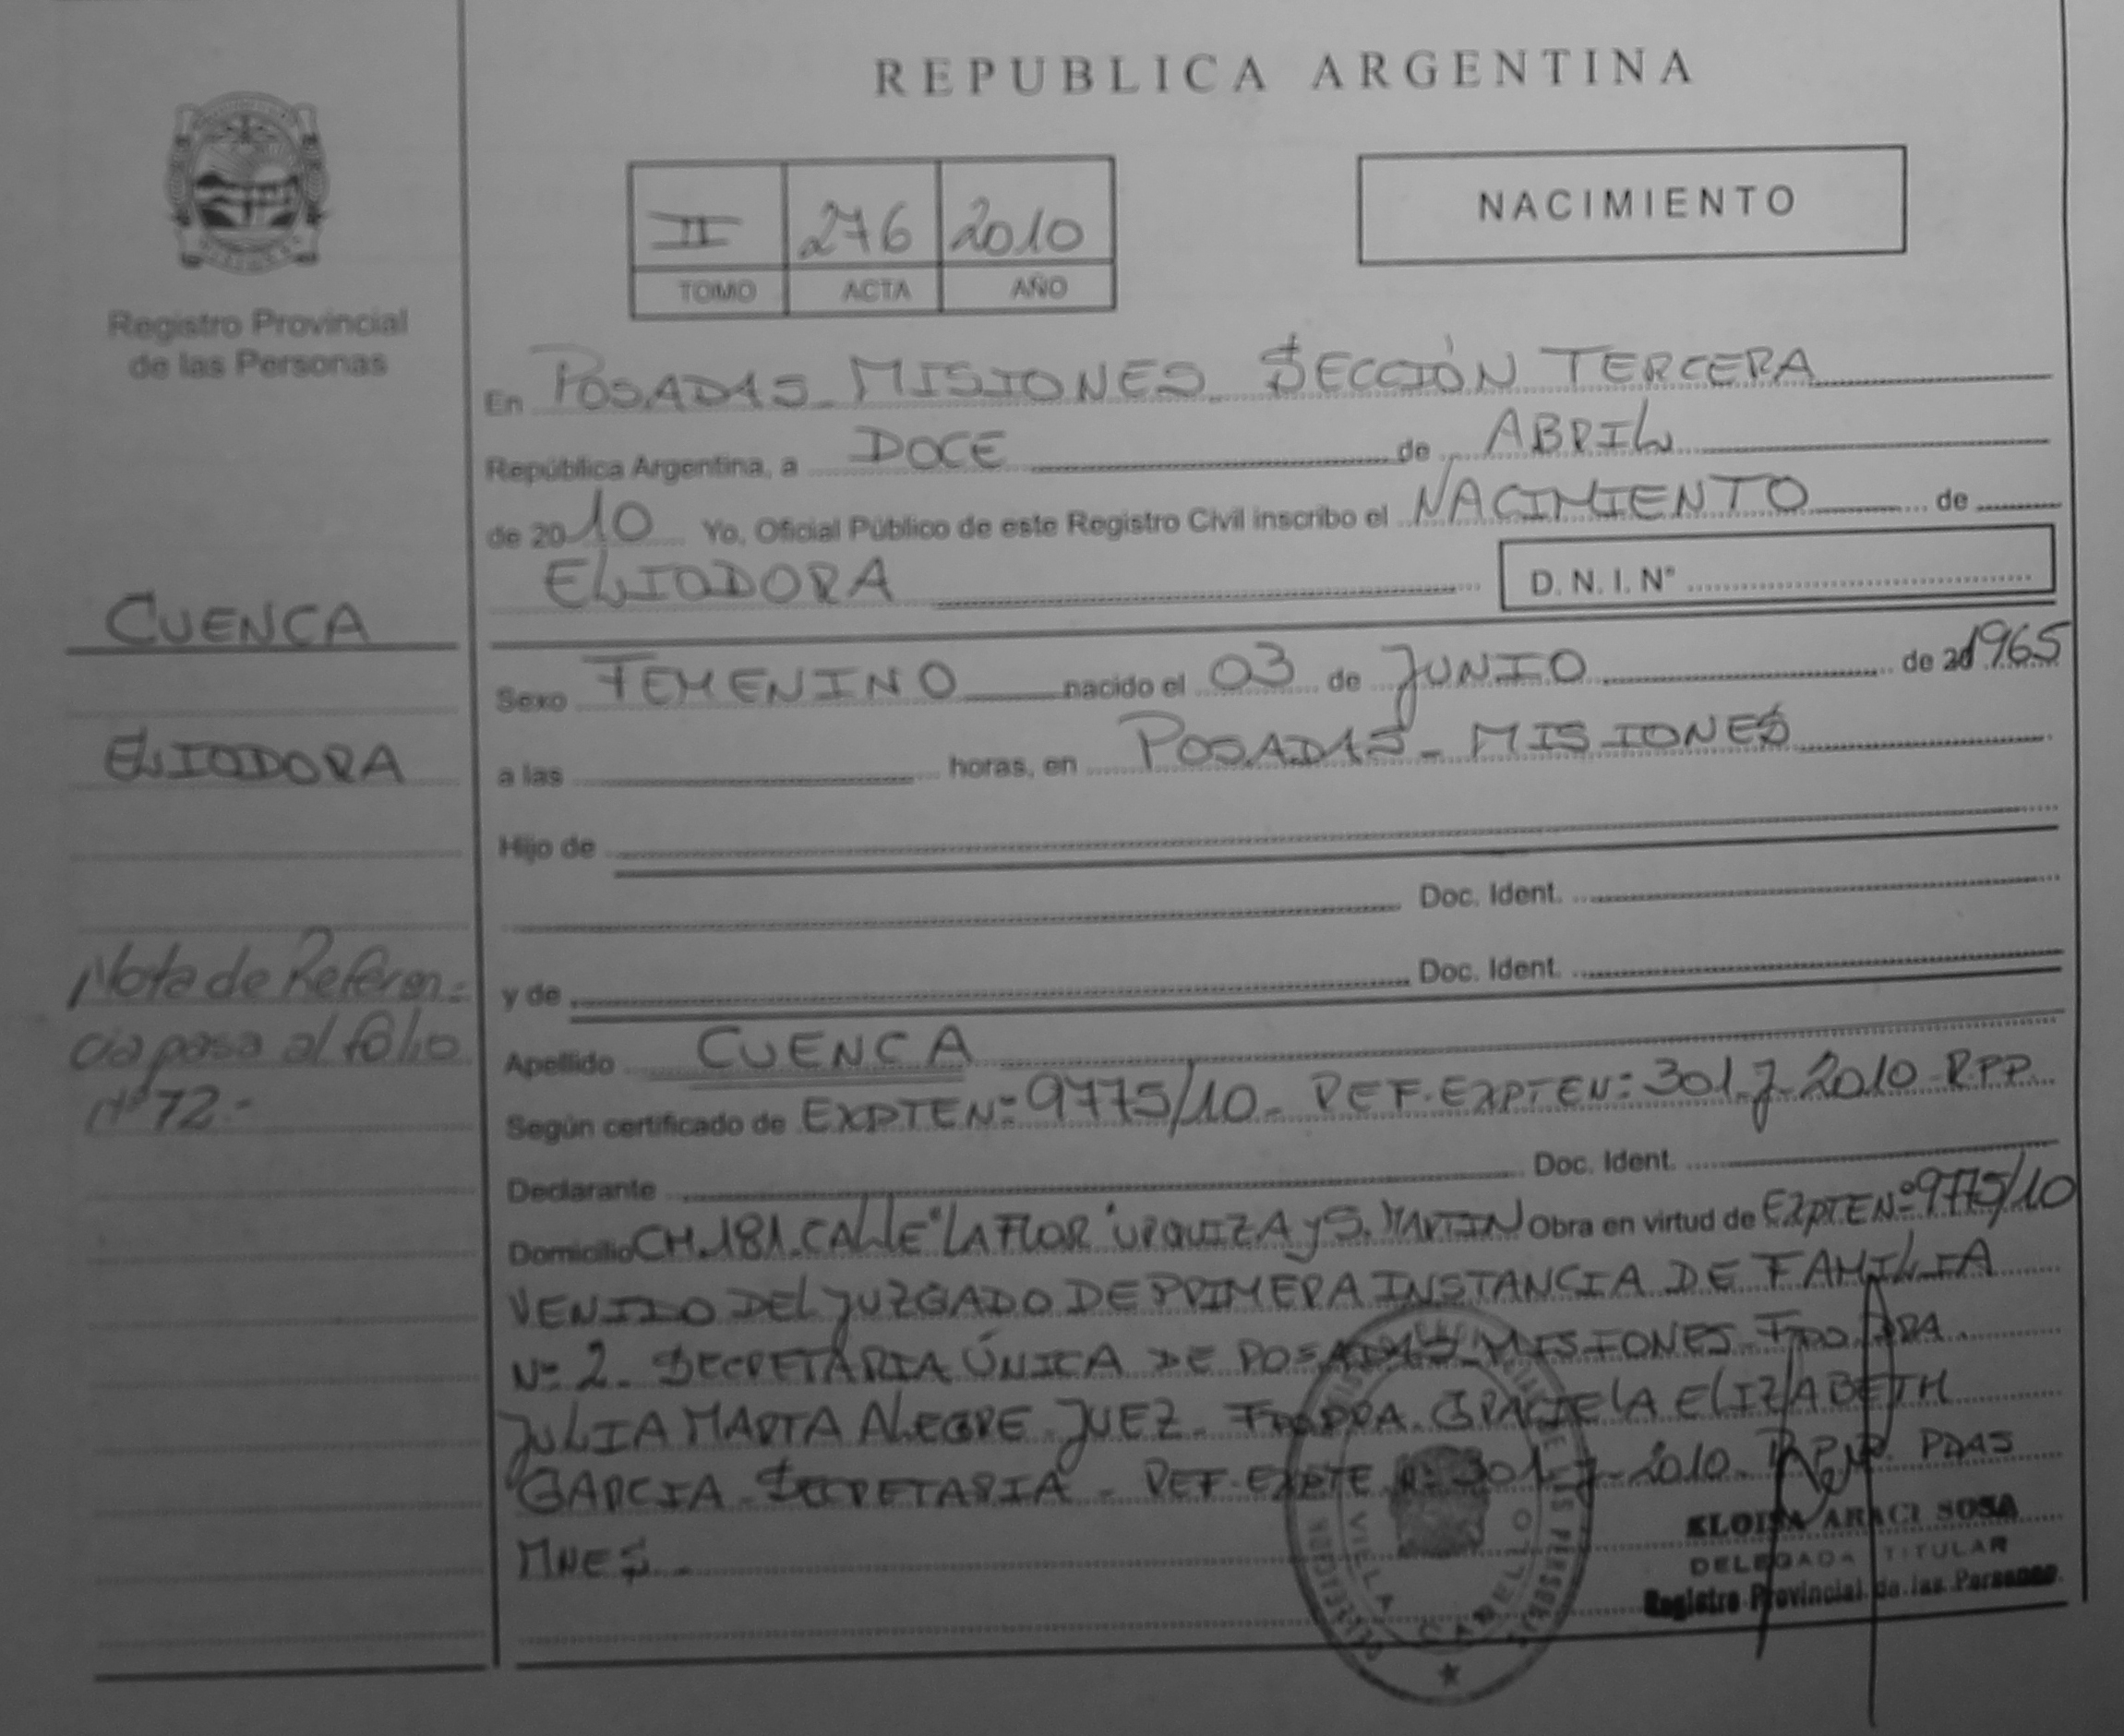 REPUBLICA ARGENTINA
NACIMIENTO
II 276 2010
TOMO ACTA AÑO
Registro Provincial
de las Personas
En POSADAS - MISIONES - SECCIÓN TERCERA
República Argentina, a DOCE de ABRIL
de 2010 Yo, Oficial Público de este Registro Civil inscribo el NACIMIENTO de
ELIODORA D. N. I. N°
CUENCA
Sexo FEMENINO nacido el 03 de JUNIO de 20 1965
ELIODORA
a las horas, en POSADAS - MISIONES
Hijo de
Doc. Ident.
y de Doc. Ident.
Nota de Referen-
cia pasa al folio
N° 72.-
Apellido CUENCA
Según certificado de EXPTE N° 9775/10 - REF. EXPTE N° 301-J-2010-RPP.
Declarante Doc. Ident.
Domicilio CH. 181. CALLE "LA FLOR" URQUIZA y S. MARTIN Obra en virtud de EXPTE N° 9775/10
VENIDO DEL JUZGADO DE PRIMERA INSTANCIA DE FAMILIA
N° 2 - SECRETARIA ÚNICA DE POSADAS - MISIONES - FDO DRA
JULIA MARTA ALEGRE - JUEZ - FDO DRA. GRACIELA ELIZABETH
GARCIA - SECRETARIA - REF. EXPTE N° 301-J-2010. PDAS
MNES -
ELOISA ARACI SOSA
DELEGADA TITULAR
Registro Provincial de las Personas
VILLA CABELLO